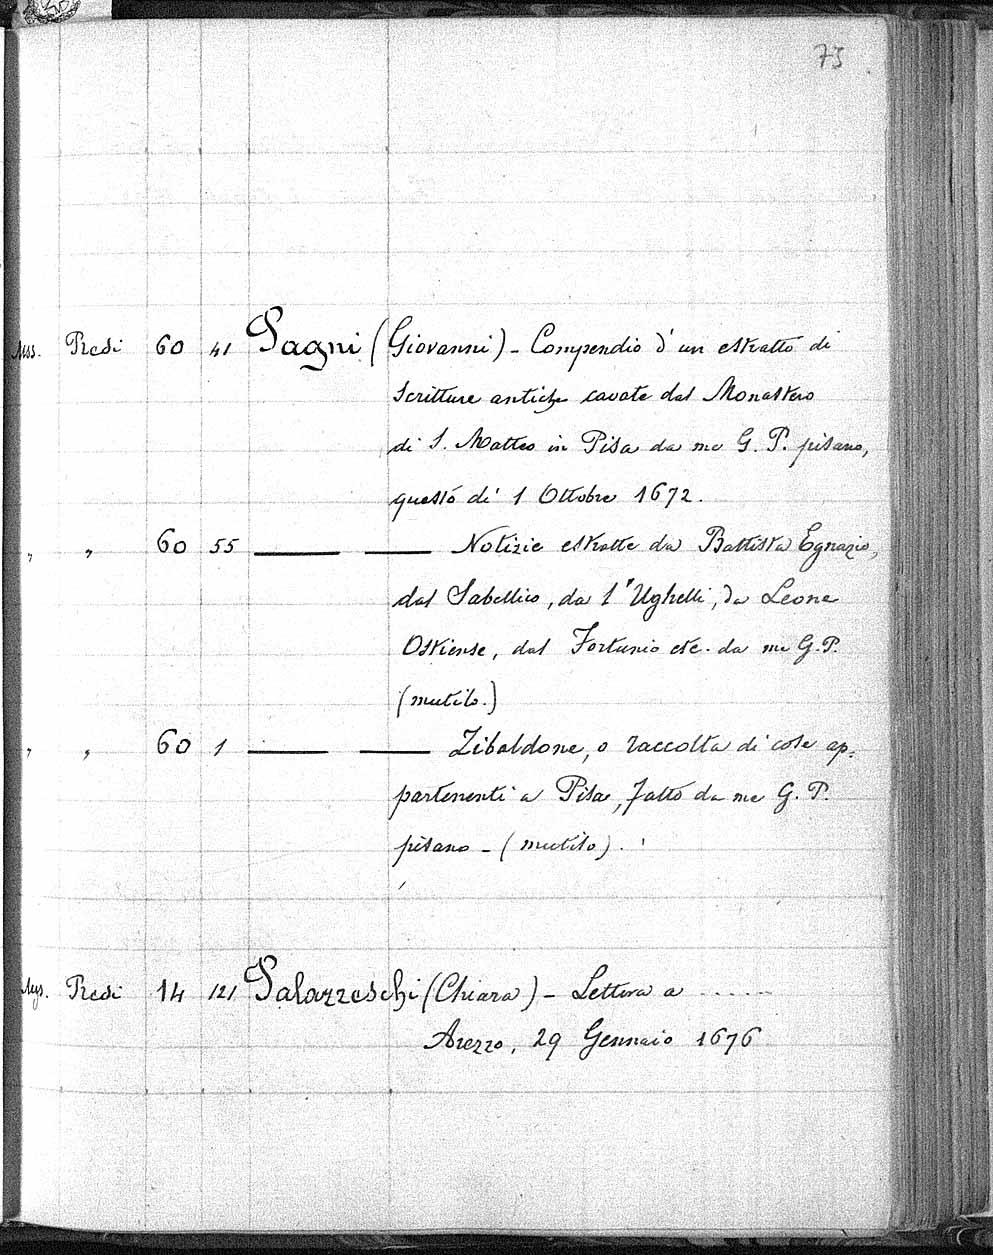 73
Mss. Redi 60 41 Pagni (Giovanni) - Compendio d'un estratto di
Scritture antiche cavate dal Monastero
di S. Matteo in Pisa da me G. P. pisano,
questo dì 1 Ottobre 1672.
" " 60 55 — — Notizie estratte da Battista Egnazio,
dal Sabellico, da l'Ughelli, da Leone
Ostiense, dal Fortunio etc. da me G. P.
(mutilo.)
" " 60 1 — — Zibaldone, o raccolta di cose ap-
partenenti a Pisa, fatto da me G. P.
pisano - (mutilo).
Mss. Redi 14 121 Palazzeschi (Chiara) - Lettera a .....
Arezzo, 29 Gennaio 1676